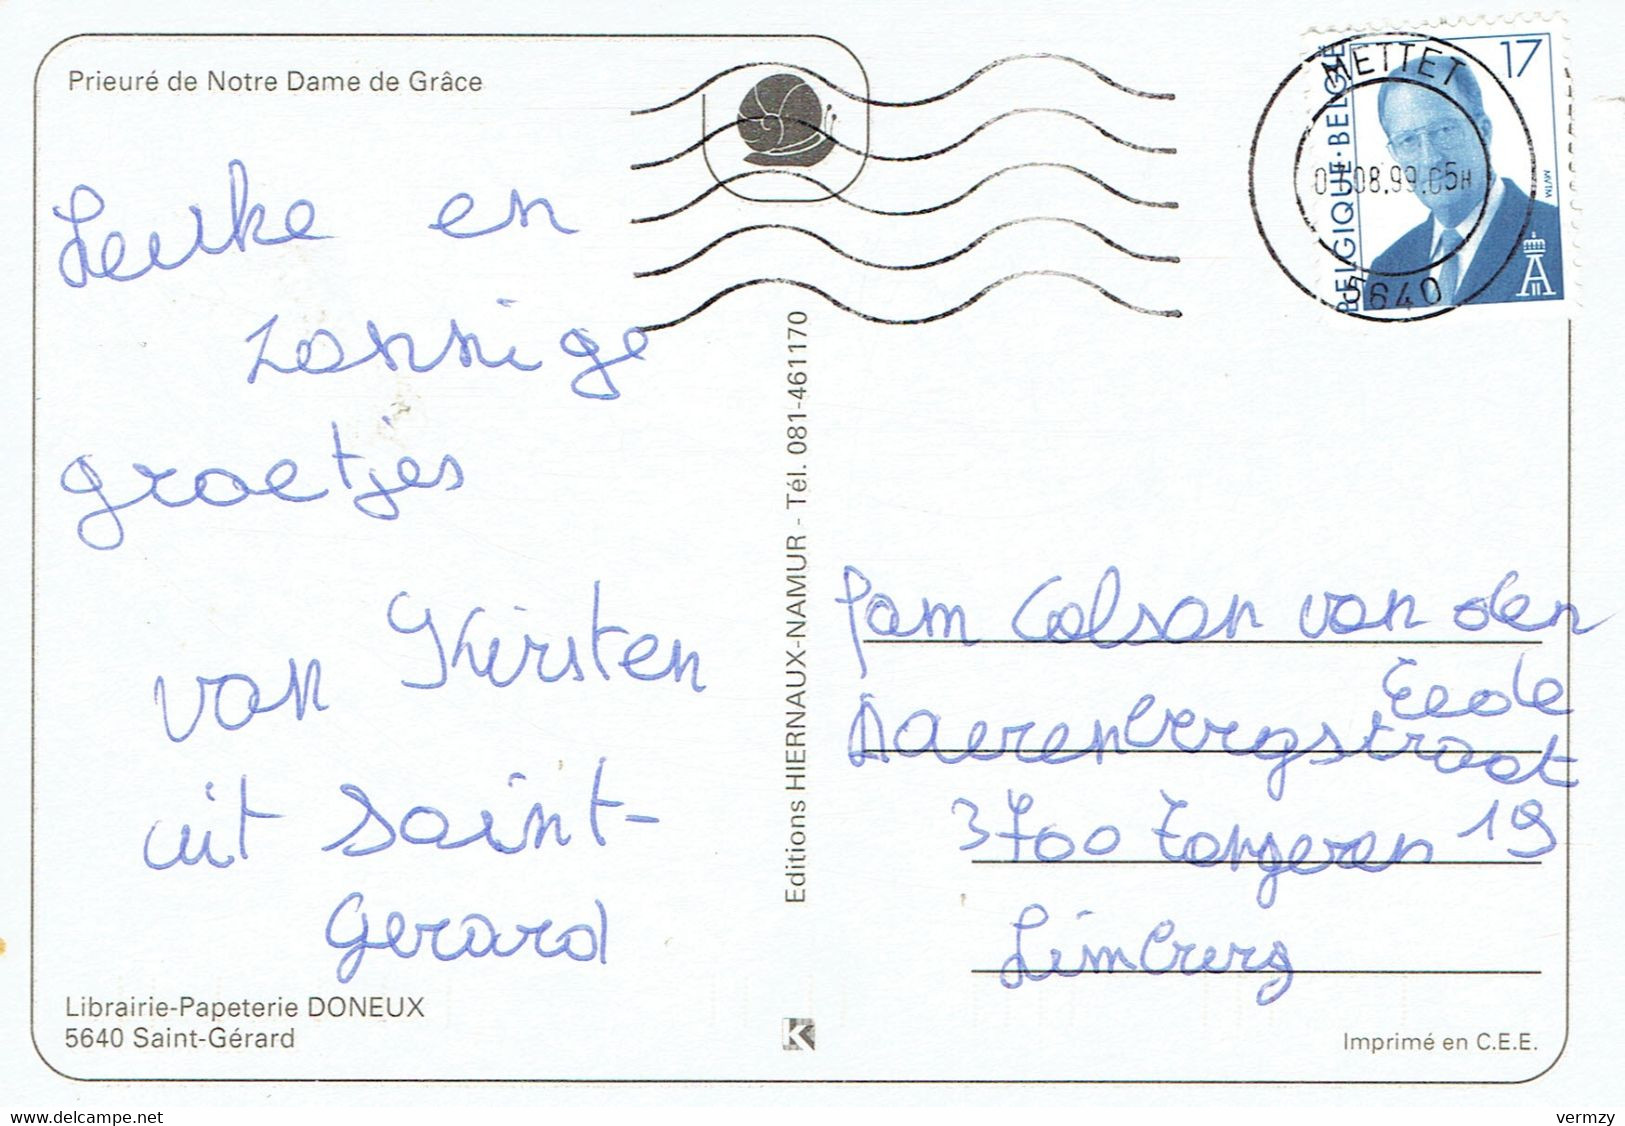 Prieuré de Notre Dame de Grâce
Leuke en
zonnige
groetjes
van Kirsten
uit Saint-
Gerard
Librairie-Papeterie DONEUX
5640 Saint-Gérard
Editions HIERNAUX-NAMUR - Tél. 081-461170
K
METTET
08.99.05H
5640
BELGIQUE·BELGIË
17
MVTM
Pam Colson van den
Eede
Daerenbergstraat
3700 Tongeren 19
Limburg
Imprimé en C.E.E.
delcampe.net
vermzy